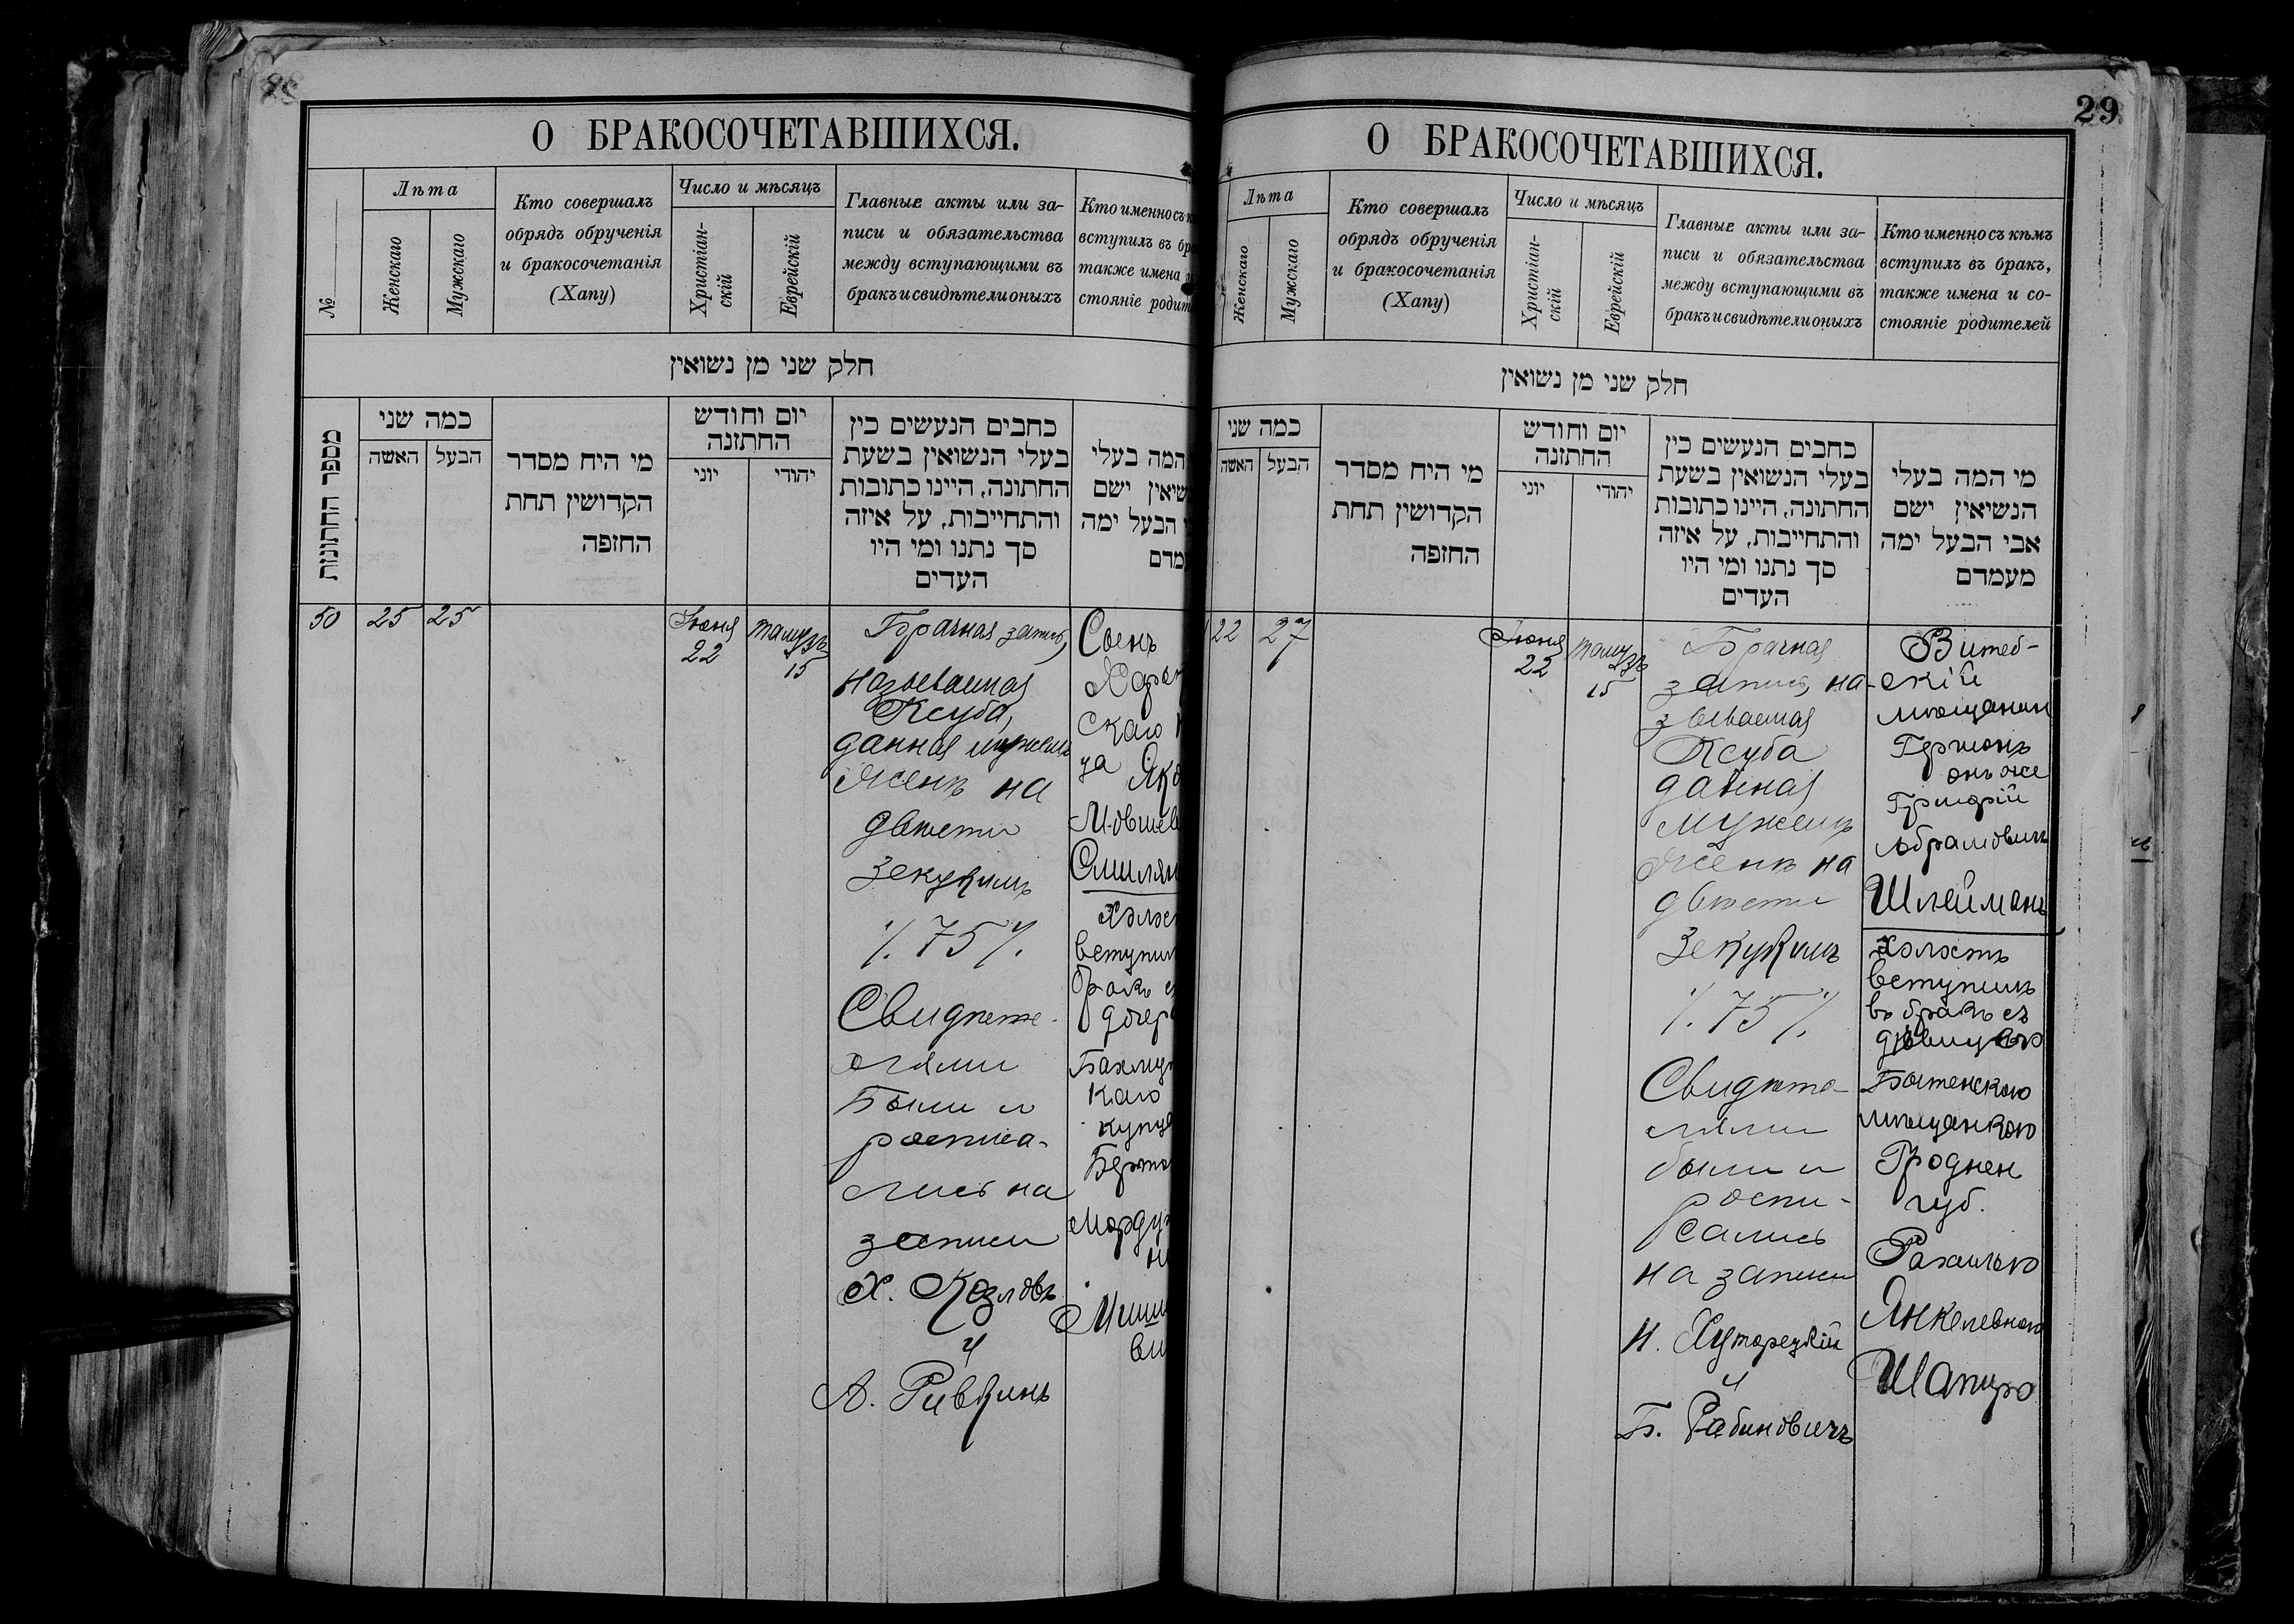 О БРАКОСОЧЕТАВШИХСЯ.
№
Лѣта
Женскаго
Мужскаго
Кто совершалъ
обрядъ обрученія
и бракосочетанія
(Хапу)
Число и мѣсяцъ
Христіан-
скій
Еврейскій
Главные акты или за-
писи и обязательства
между вступающими въ
бракъ и свидѣтели оныхъ
Кто именно съ к
вступилъ въ бр
также имена и
стояніе родит
חלק שני מן נשואין
מספר החתונות
כמה שני
האשה
הבעל
מי היח מסדר
הקדושין תחת
החזפה
יום וחודש
החתזנה
יוני
יהודי
כחבים הנעשים כין
בעלי הנשואין בשעת
החתונה, היינו כתובות
והתחייבות, על איזה
סך נתנו ומי היו
העדים
המה בעלי
שיאין ישם
י הבעל ימה
עמדם
50
25
25
Іюня
22
тамузъ
15
Брачная запись,
называемая
Ксуба,
данная мужемъ
женѣ на
двѣсти
Зекукимъ
٪ 75 ٪
Свидѣте-
лями
были и
росписа-
лись на
записи
Х. Козловъ
и
А. Ривкинъ
Сынъ
Харьк
скаго к
ца Яко
Мовшев
Смилян
холост
вступил
бракъ с
дочер
Бахмут
каго
купца
Берто
Морду
Миши
ви
29
О БРАКОСОЧЕТАВШИХСЯ.
Лѣта
Женскаго
Мужскаго
Кто совершалъ
обрядъ обрученія
и бракосочетанія
(Хапу)
Число и мѣсяцъ
Христіан-
скій
Еврейскій
Главные акты или за-
писи и обязательства
между вступающими въ
бракъ и свидѣтели оныхъ
Кто именно съ кѣмъ
вступилъ въ бракъ,
также имена и со-
стояніе родителей
חלק שני מן נשואין
כמה שני
האשה
הבעל
מי היח מסדר
הקדושין תחת
החזפה
יום וחודש
החתזנה
יוני
יהודי
כחבים הנעשים כין
בעלי הנשואין בשעת
החתונה, היינו כתובות
והתחייבות, על איזה
סך נתנו ומי היו
העדים
מי המה בעלי
הנשיאין ישם
אבי הבעל ימה
מעמדם
22
27
Іюня
22
тамузъ
15
Брачная
запись, на-
зываемая
Ксуба
данная
мужемъ
женѣ на
двѣсти
Зекукимъ
٪ 75 ٪
Свидѣте-
лями
были и
роспи-
сались
на записи
И. Хуторецкій
и
Б. Рабиновичъ
Витеб-
скій
мѣщанин
Гершонъ
онъ же
Григорій
Абрамовичъ
Шлейманъ
холостъ
вступилъ
въ бракъ съ
дѣвицею
мѣщанкою
Гроднен
губ.
Рахилью
Янкелевною
Шапиро